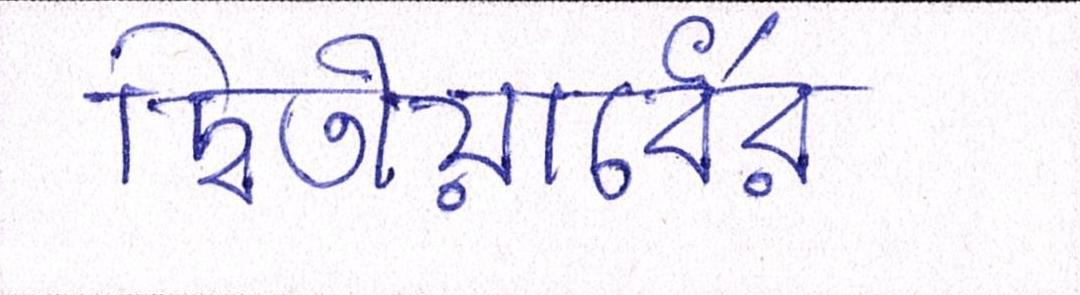 দ্বিতীয়ার্ধের